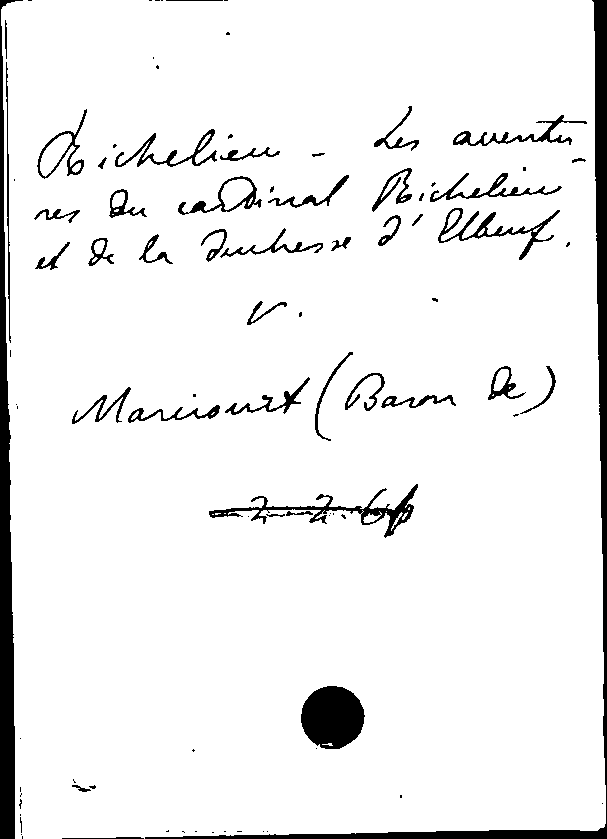 Richelieu - Les aventu-
res du cardinal Richelieu
et de la duchesse d'Elbeuf.
V.
Maricourt (Baron de)